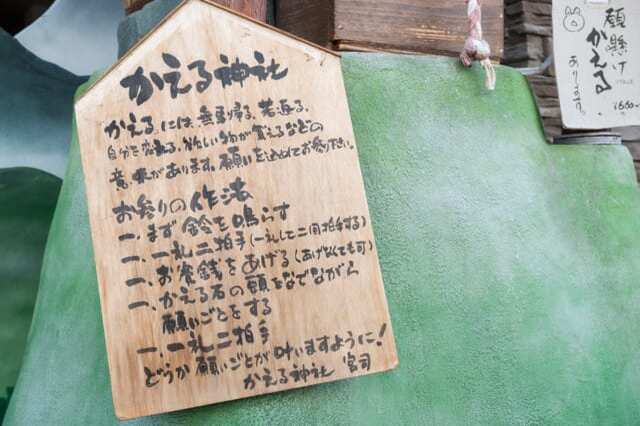 かえる神社
かえるには、無事帰る、若返る、
自分を変える、欲しい物が買えるなどの
意味があります。願いを込めてお参り下さい。
お参りの作法
一、まず鈴を鳴らす
一、一礼二拍手(一礼して二回拍手する)
一、お賽銭をあげる(あげなくても可)
一、かえる石の頭をなでながら
願いごとをする
一、一礼二拍手
どうか願いごとが叶いますように!
かえる神社 宮司
願懸け
かえる
あります。